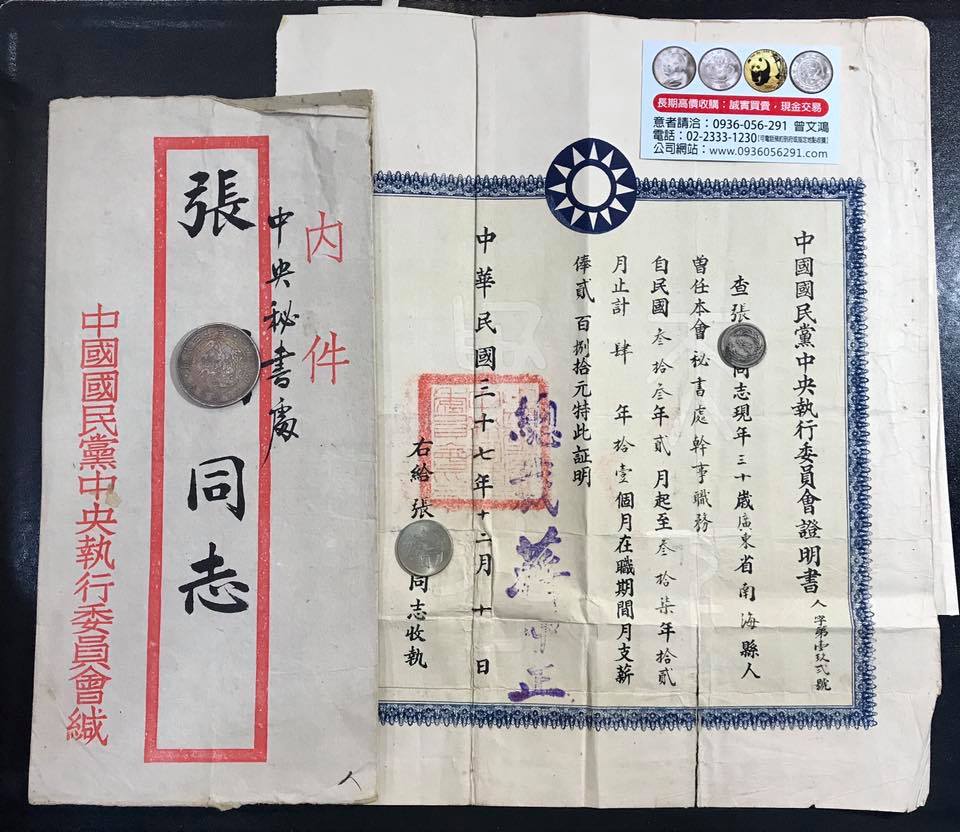 長期高價收購：誠實買賣，現金交易
意者請洽：0936-056-291 曾文鴻
電話：02-2333-1230
公司網站：www.0936056291.com
中國國民黨中央執行委員會證明書
人字第壹玖弍號
查張 同志現年三十歲廣東省南海縣人
曾任本會秘書處幹事職務
自民國叁拾叁年貳月起至叁拾柒年拾貳
月止計肆年拾壹個月在職期間月支薪
俸貳百捌拾元特此証明
總裁蔣中正
中華民國三十七年十二月十日
右給張 同志收執
內件
中央秘書處
張 同志
中國國民黨中央執行委員會緘
人